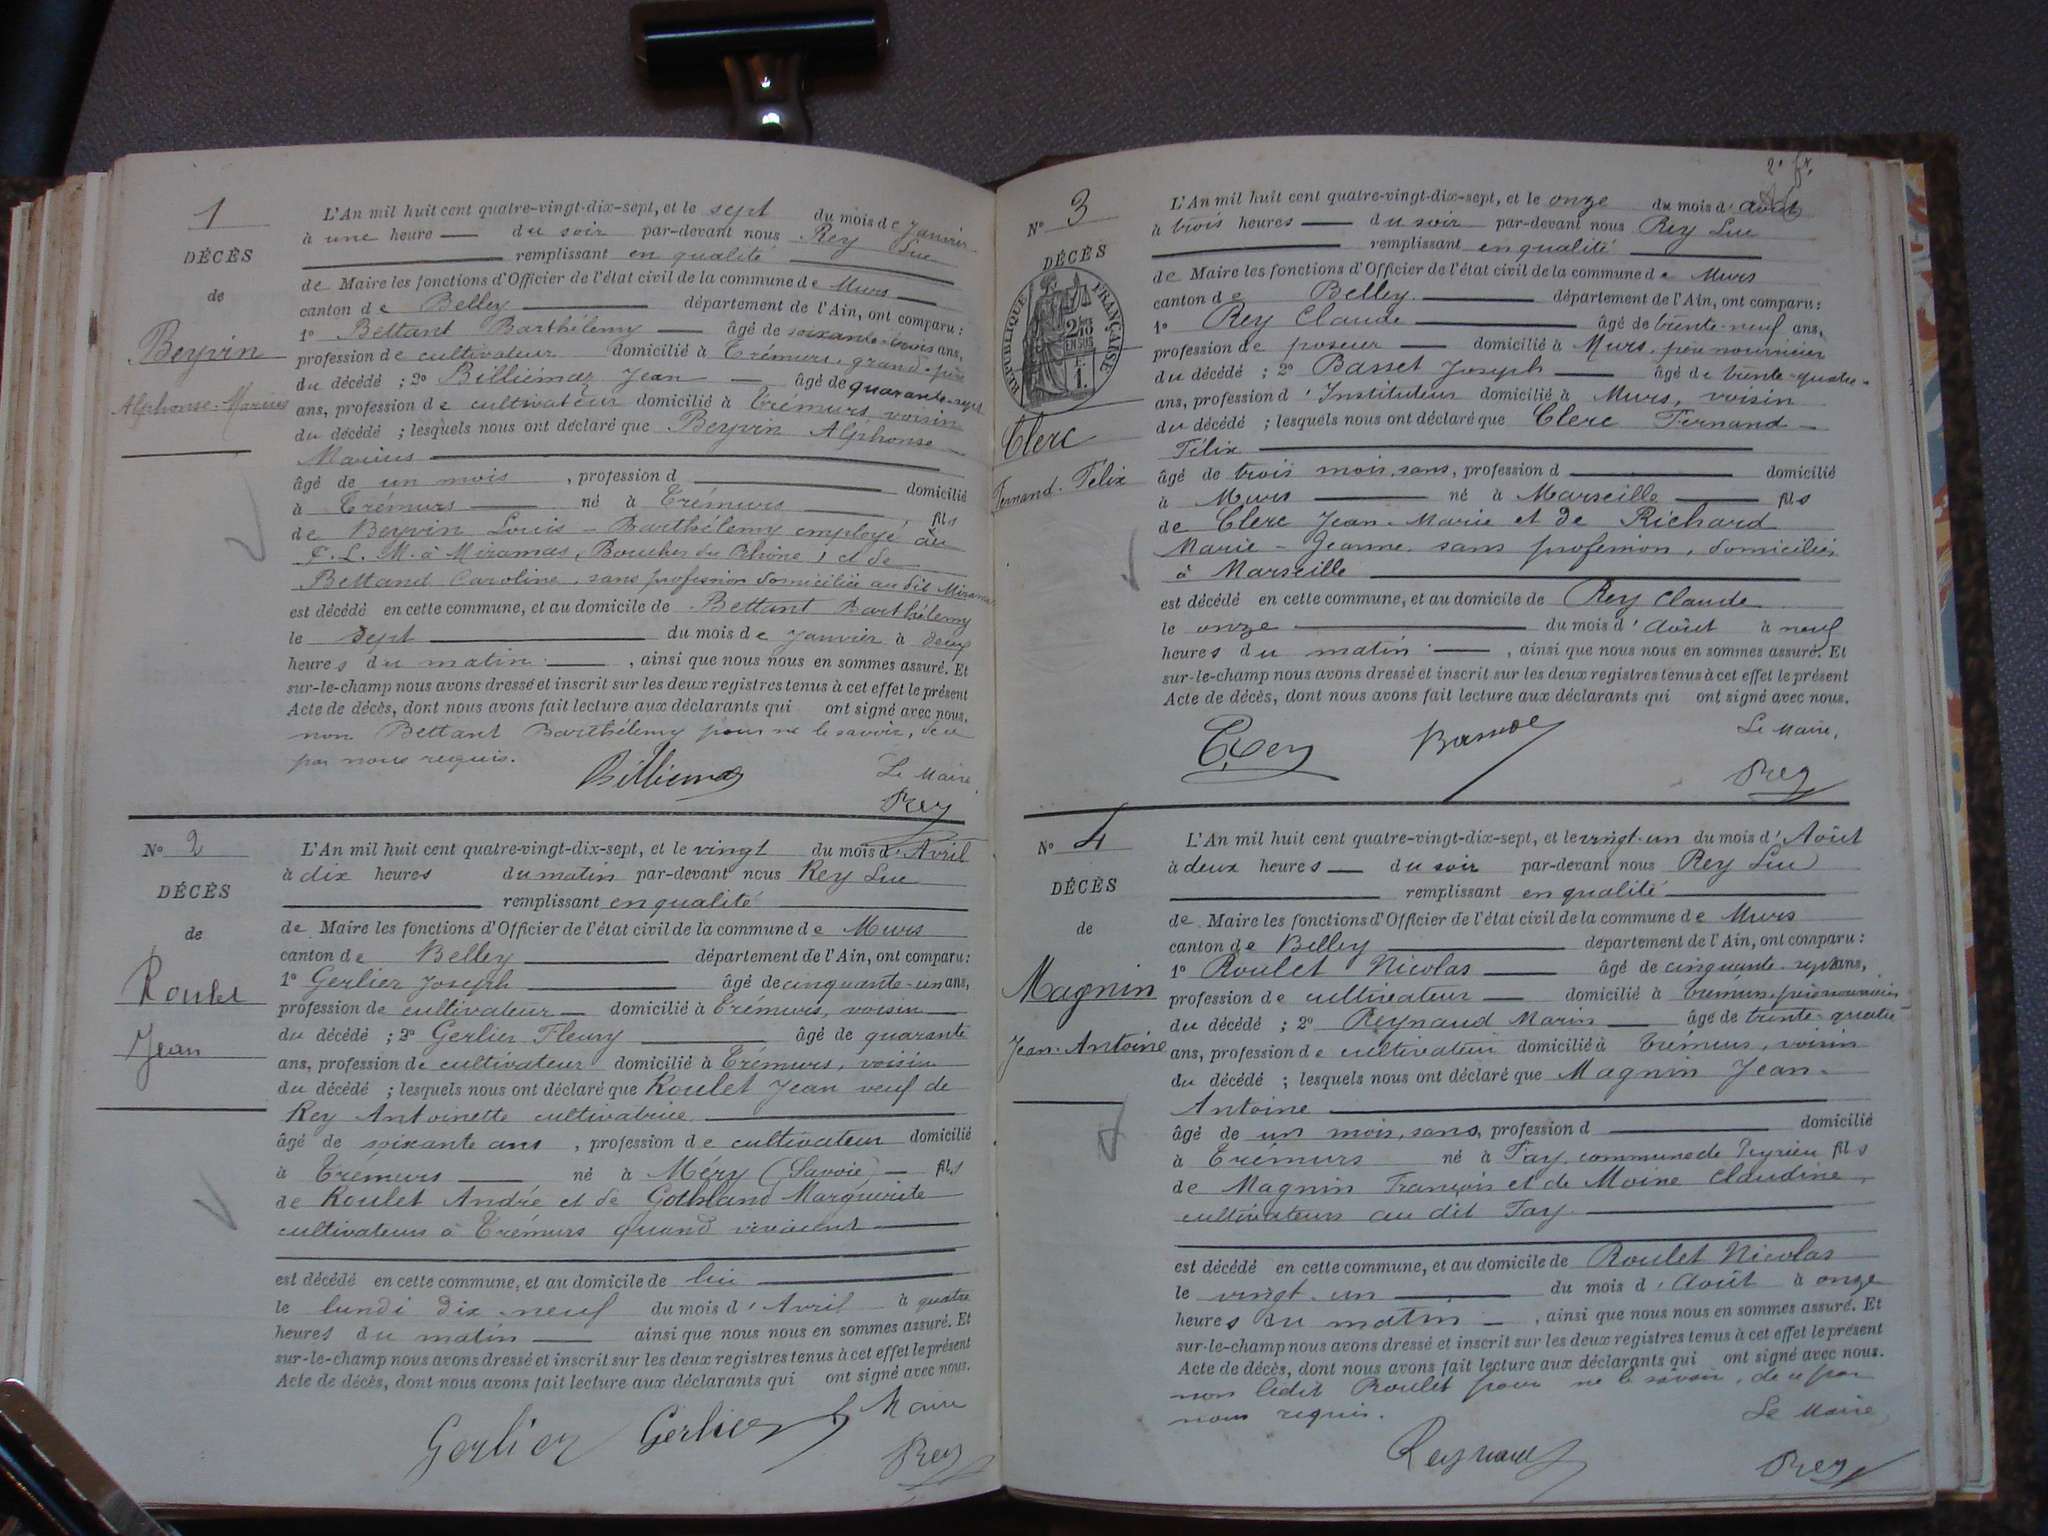 1
DÉCÈS
de
Beyvin
Alphonse-Marius
L'An mil huit cent quatre-vingt-dix-sept, et le sept du mois de Janvier
à une heure du soir par-devant nous Rey Luc
remplissant en qualité
de Maire les fonctions d'Officier de l'état civil de la commune de Murs
canton de Belley département de l'Ain, ont comparu :
1º Bettant Barthélemy âgé de soixante-trois ans,
profession de cultivateur domicilié à Trémurs, grand-père
du décédé ; 2º Billiémaz Jean âgé de quarante-sept
ans, profession de cultivateur domicilié à Trémurs, voisin
du décédé ; lesquels nous ont déclaré que Beyvin Alphonse
Marius
âgé de un mois , profession d domicilié
à Trémurs né à Trémurs fils
de Beyvin Louis-Barthélemy employé au
P. L. M. à Miramas, (Bouches du Rhône) et de
Bettand Caroline, sans profession domiciliée au dit Miramas
est décédé en cette commune, et au domicile de Bettant Barthélemy
le sept du mois de Janvier à deux
heures du matin , ainsi que nous nous en sommes assuré. Et
sur-le-champ nous avons dressé et inscrit sur les deux registres tenus à cet effet le présent
Acte de décès, dont nous avons fait lecture aux déclarants qui ont signé avec nous.
non Bettant Barthélemy pour ne le savoir, de ce
par nous requis.
Billiemaz
Le Maire
Rey
Nº 2
DÉCÈS
de
Roulet
Jean
L'An mil huit cent quatre-vingt-dix-sept, et le vingt du mois d'Avril
à dix heures du matin par-devant nous Rey Luc
remplissant en qualité
de Maire les fonctions d'Officier de l'état civil de la commune de Murs
canton de Belley département de l'Ain, ont comparu :
1º Gerlier Joseph âgé de cinquante-un ans,
profession de cultivateur domicilié à Trémurs, voisin
du décédé ; 2º Gerlier Fleury âgé de quarante
ans, profession de cultivateur domicilié à Trémurs, voisin
du décédé ; lesquels nous ont déclaré que Roulet Jean veuf de
Rey Antoinette cultivatrice
âgé de soixante ans , profession de cultivateur domicilié
à Trémurs né à Méry (Savoie) fils
de Roulet André et de Gothland Marguerite
cultivateurs à Trémurs quand vivaient
est décédé en cette commune, et au domicile de lui
le lundi dix-neuf du mois d'Avril à quatre
heures du matin ainsi que nous nous en sommes assuré. Et
sur-le-champ nous avons dressé et inscrit sur les deux registres tenus à cet effet le présent
Acte de décès, dont nous avons fait lecture aux déclarants qui ont signé avec nous.
Gerlier Gerlier
Le Maire
Rey
2º
Nº 3
DÉCÈS
RÉPUBLIQUE FRANÇAISE
2/10 EN SUS
F.
1.
Clerc
Fernand-Félix
L'An mil huit cent quatre-vingt-dix-sept, et le onze du mois d'Août
à trois heures du soir par-devant nous Rey Luc
remplissant en qualité
de Maire les fonctions d'Officier de l'état civil de la commune de Murs
canton de Belley département de l'Ain, ont comparu :
1º Rey Claude âgé de trente-neuf ans,
profession de poseur domicilié à Murs, père nourricier
du décédé ; 2º Basset Joseph âgé de trente-quatre
ans, profession d'Instituteur domicilié à Murs, voisin
du décédé ; lesquels nous ont déclaré que Clerc Fernand
Félix
âgé de trois mois, sans, profession d domicilié
à Murs né à Marseille fils
de Clerc Jean-Marie et de Richard
Marie-Jeanne, sans profession, domiciliés
à Marseille
est décédé en cette commune, et au domicile de Rey Claude
le onze du mois d'Août à neuf
heures du matin , ainsi que nous nous en sommes assuré. Et
sur-le-champ nous avons dressé et inscrit sur les deux registres tenus à cet effet le présent
Acte de décès, dont nous avons fait lecture aux déclarants qui ont signé avec nous.
C. Rey Basset
Le Maire,
Rey
Nº 4
DÉCÈS
de
Magnin
Jean-Antoine
L'An mil huit cent quatre-vingt-dix-sept, et le vingt-un du mois d'Août
à deux heures du soir par-devant nous Rey Luc
remplissant en qualité
de Maire les fonctions d'Officier de l'état civil de la commune de Murs
canton de Belley département de l'Ain, ont comparu :
1º Roulet Nicolas âgé de cinquante-sept ans,
profession de cultivateur domicilié à Trémurs, père nourricier
du décédé ; 2º Reynaud Marin âgé de trente-quatre
ans, profession de cultivateur domicilié à Trémurs, voisin
du décédé ; lesquels nous ont déclaré que Magnin Jean-
Antoine
âgé de un mois, sans, profession d domicilié
à Trémurs né à Fay, commune de Peyrieu fils
de Magnin François et de Moine Claudine,
cultivateurs au dit Fay
est décédé en cette commune, et au domicile de Roulet Nicolas
le vingt-un du mois d'Août à onze
heures du matin , ainsi que nous nous en sommes assuré. Et
sur-le-champ nous avons dressé et inscrit sur les deux registres tenus à cet effet le présent
Acte de décès, dont nous avons fait lecture aux déclarants qui ont signé avec nous.
non ledit Roulet pour ne le savoir, de ce par
nous requis.
Le Maire
Reynaud
Rey